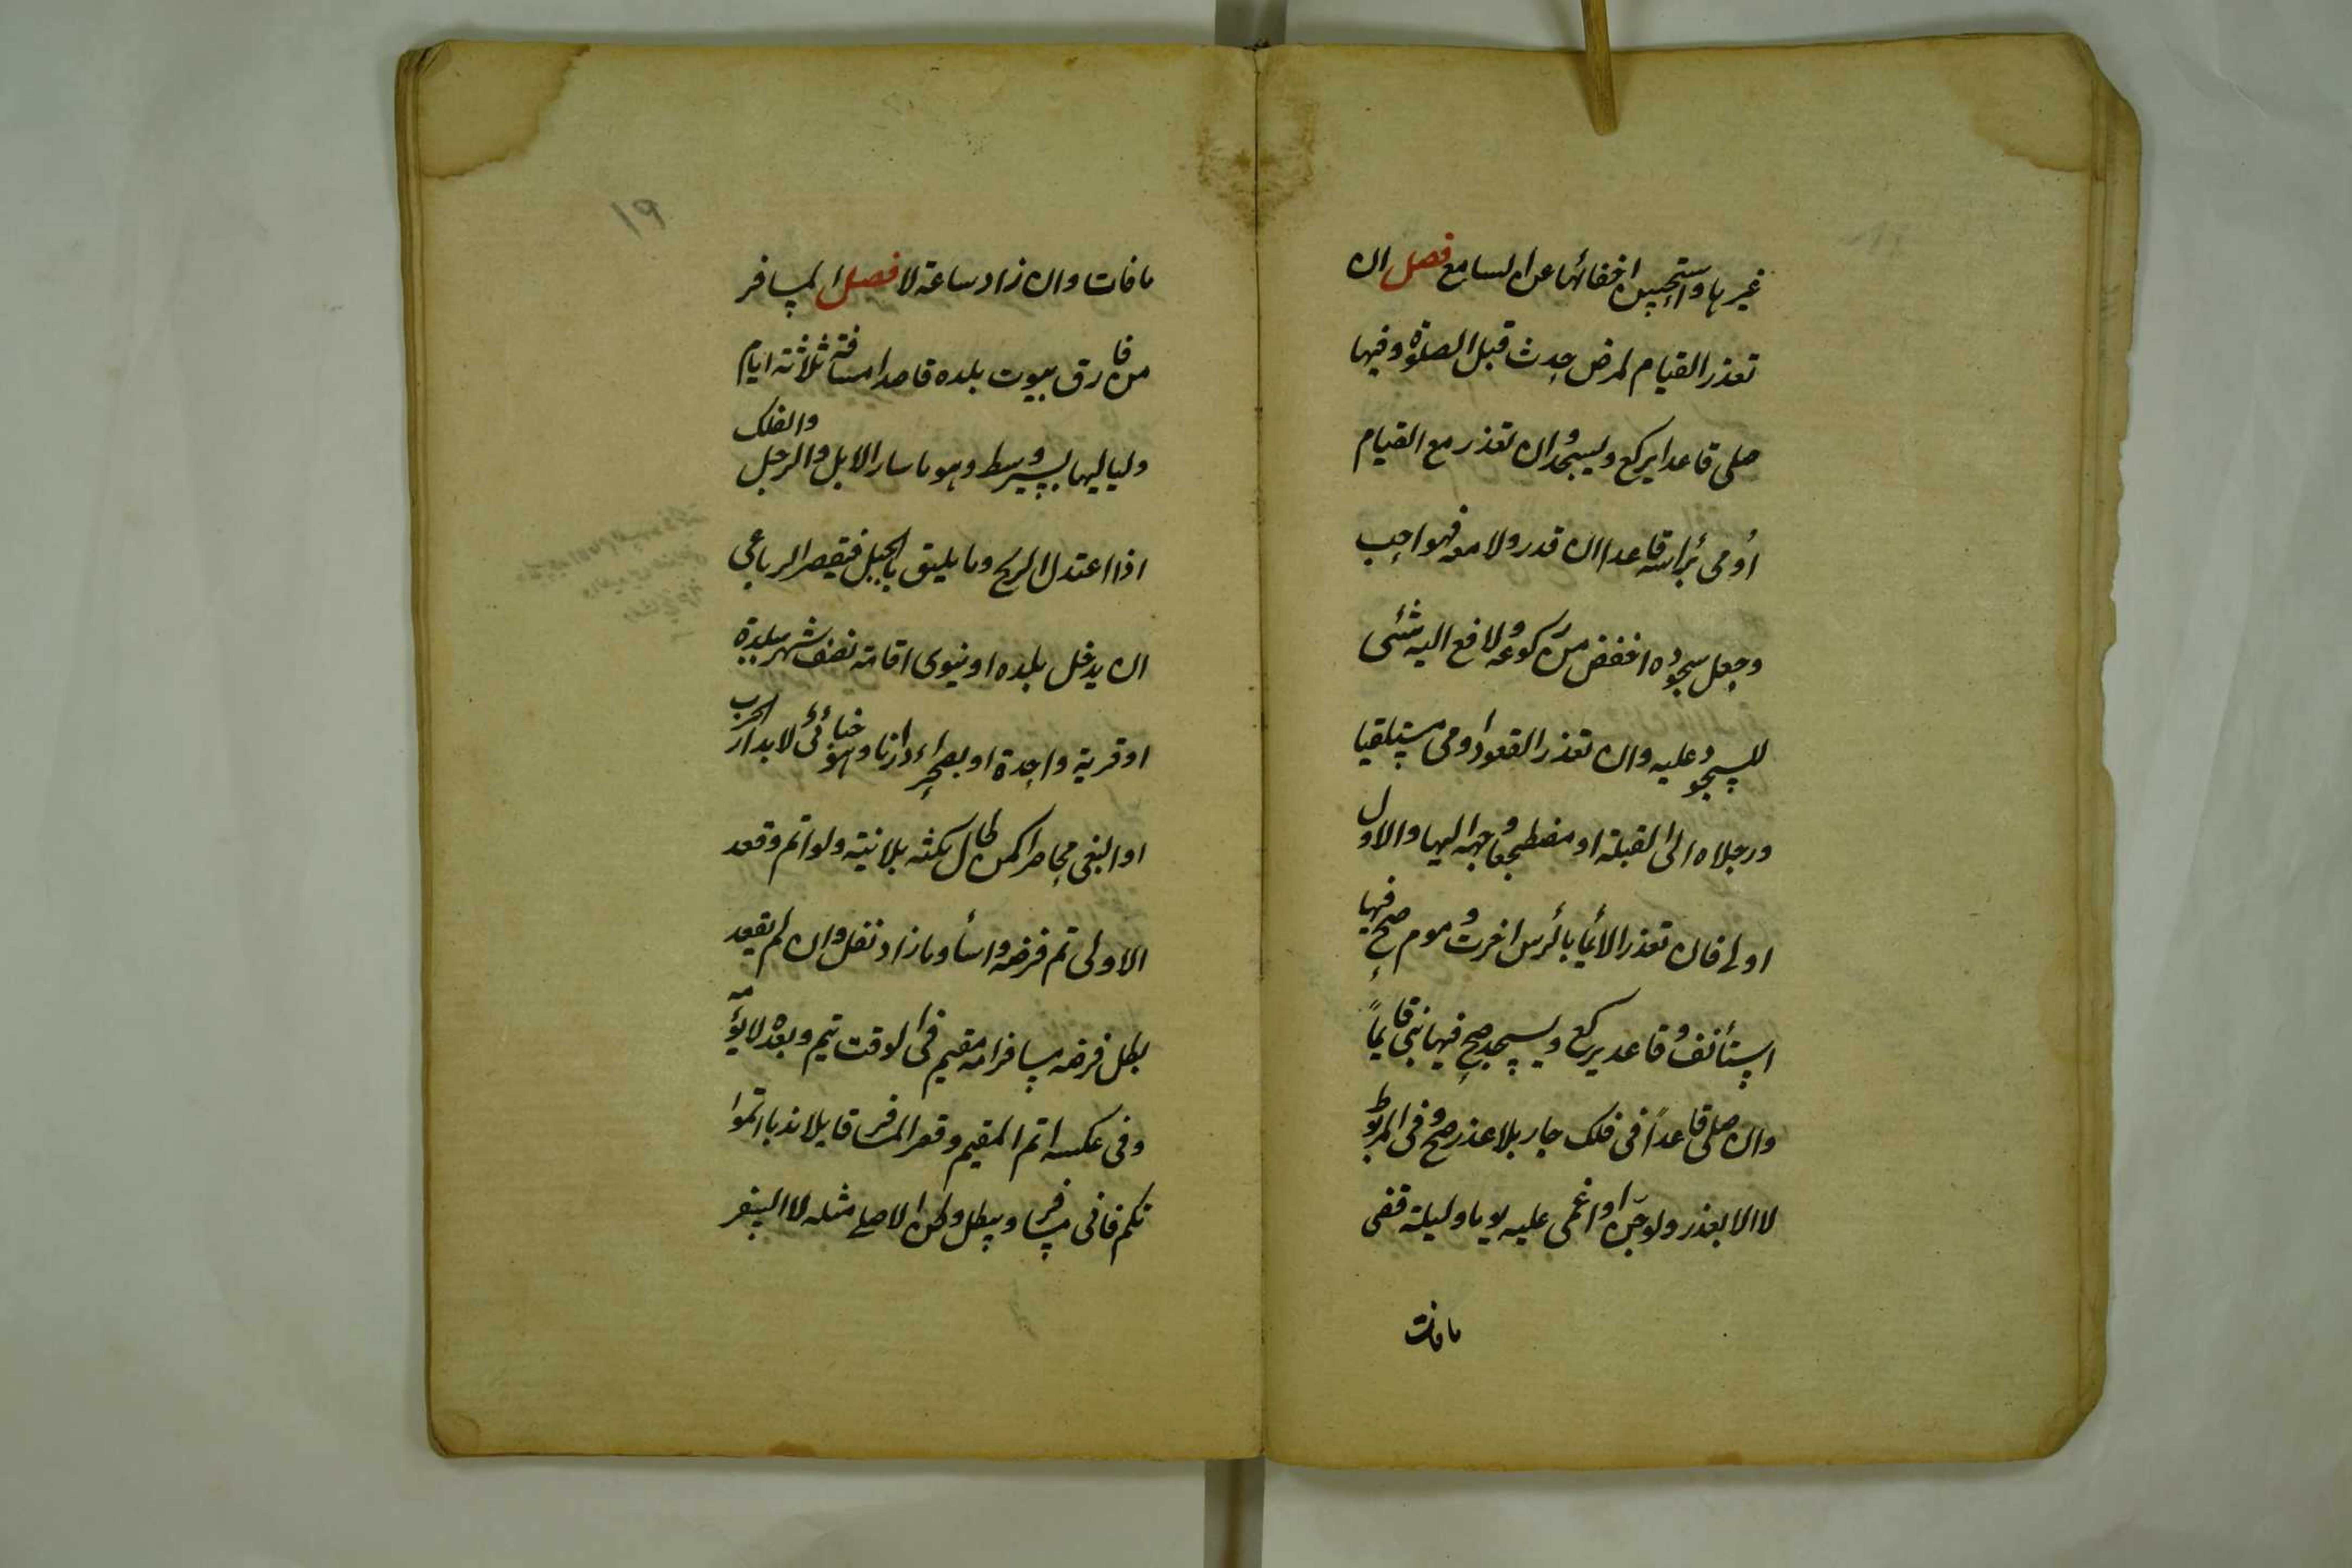 غيرها واستحسن اخفائها عن السامع فصل ان
تعذر القيام لمرض حدث قبل الصلوة وفيها
صلى قاعدا يركع ويسجد وان تعذر مع القيام
أومى برأسه قاعدا ان قدر ولا معه فهو احب
وجعل سجوده اخفض من ركوعه ولا رفع اليه شئى
للسجود عليه وان تعذر القعود اومى مستلقيا
ورجلاه الى القبلة او مضطجعا وجهه اليها والاول
اولى فان تعذر الأيما بالرأس اخرت وموم صح فيها
استأنف وقاعد يركع ويسجد صح فيها بنى قايماً
وان صلى قاعداً فى فلك جار بلا عذر صح وفى المربوط
لا الا بعذر ولو جن او اغمى عليه يوما وليلة قضى
ما فات
١٩
ما فات وان زاد ساعة لا فصل المسافر
من فارق بيوت بلده قاصدا مسافة ثلاثة ايام
ولياليها بسير وسط وهو ما سار الابل والرجل والفلك
اذا اعتدل الريح وما يليق بالجبل فيقصر الرباعى
ان يدخل بلده او ينوى اقامة نصف شهر ببلدة
او قرية واحدة او بصحراء دارنا وهو خبائى لا بدار الحرب
او البغى محاصرا كمن طال مكثه بلا نية ولو اتم وقعد
الاولى تم فرضه واسأ وما زاد نفل وان لم يقعد
بطل فرضه مسافر امه مقيم فى الوقت يتم وبعده لا يؤمه
وفى عكسه اتم المقيم وقصر المسافر قايلا ندبا اتموا
نكم فانى مسافر ويبطل وطن الاصلى مثله لا السفر